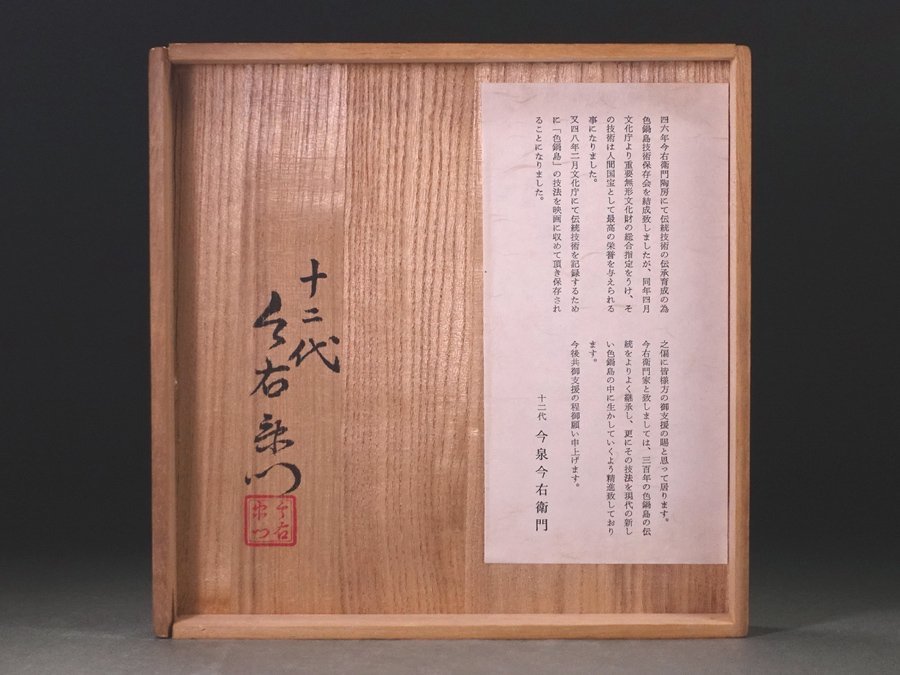 四六年今右衛門陶房にて伝統技術の伝承育成の為
色鍋島技術保存会を結成致しましたが、同年四月
文化庁より重要無形文化財の総合指定をうけ、そ
の技術は人間国宝として最高の栄誉を与えられる
事になりました。
又四八年二月文化庁にて伝統技術を記録するため
に「色鍋島」の技法を映画に収めて頂き保存され
ることになりました。
之偏に皆様方の御支援の賜と思って居ります。
今右衛門家と致しましては、三百年の色鍋島の伝
統をよりよく継承し、更にその技法を現代の新し
い色鍋島の中に生かしていくよう精進致しており
ます。
今後共御支援の程御願い申上げます。
十二代 今泉今右衛門
十二代
今右衛門
今右
衛門